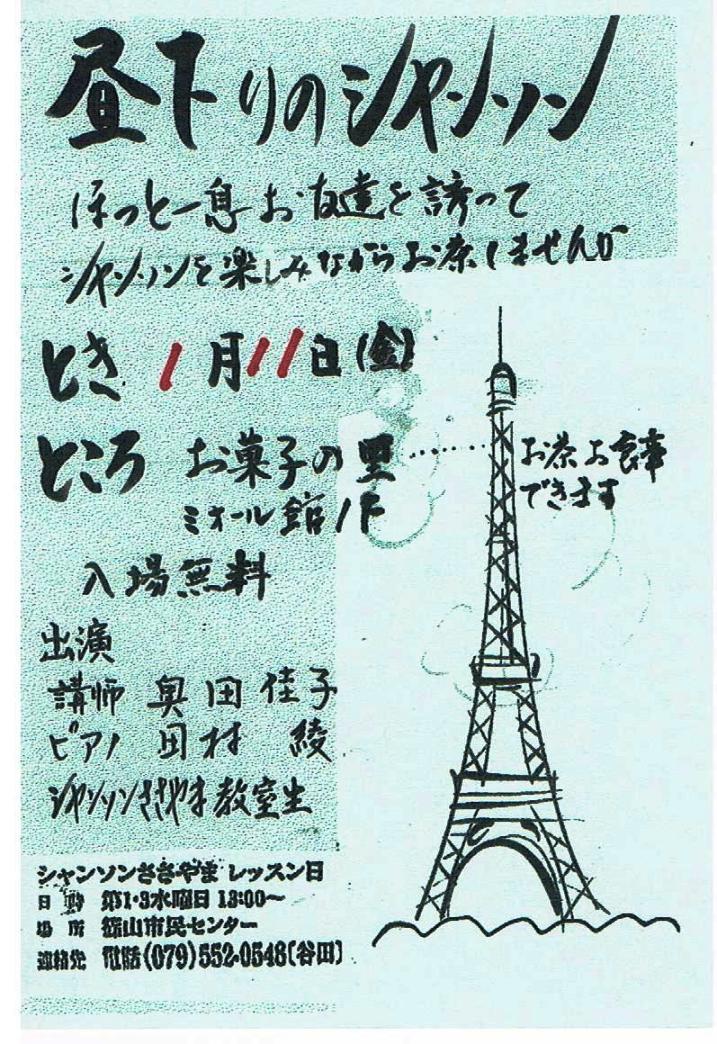 昼下りのシャンソン
ほっと一息お友達を誘って
シャンソンを楽しみながらお茶しませんか
とき 1月11日(金)
ところ お菓子の里……お茶お食事
できます
ミオール館1F
入場無料
出演
講師 奥田佳子
ピアノ 田村 綾
シャンソンささやま教室生
シャンソンささやま レッスン日
日 時 第1・3水曜日 13:00～
場 所 篠山市民センター
連絡先 電話(079)552-0548〔谷田〕